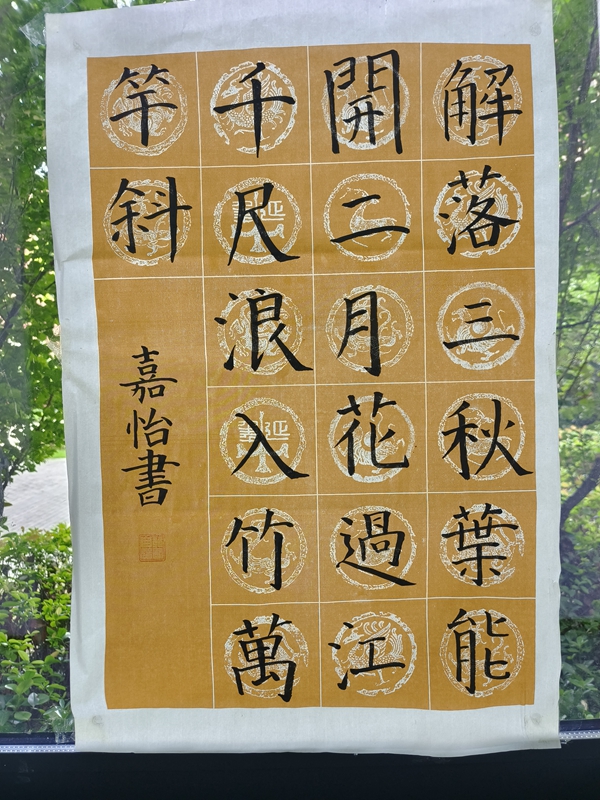 解落三秋葉能
開二月花過江
千尺浪入竹萬
竿斜
嘉怡書